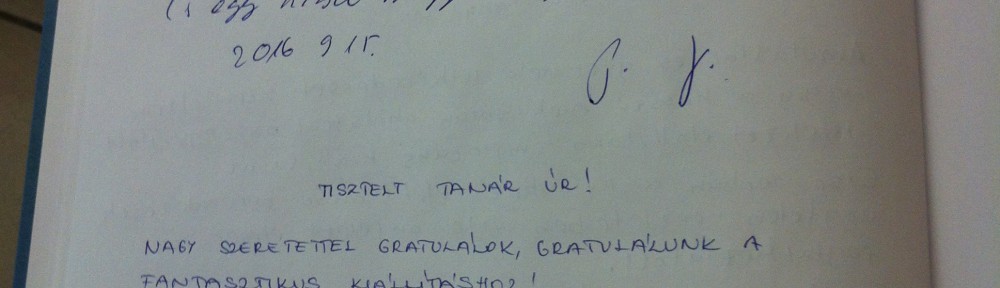 (s egy
2016 9 15.
P. J.
TISZTELT TANÁR ÚR!
NAGY SZERETETTEL GRATULÁLOK, GRATULÁLUNK A
FANTASZTIKUS KIÁLLÍTÁSHOZ!